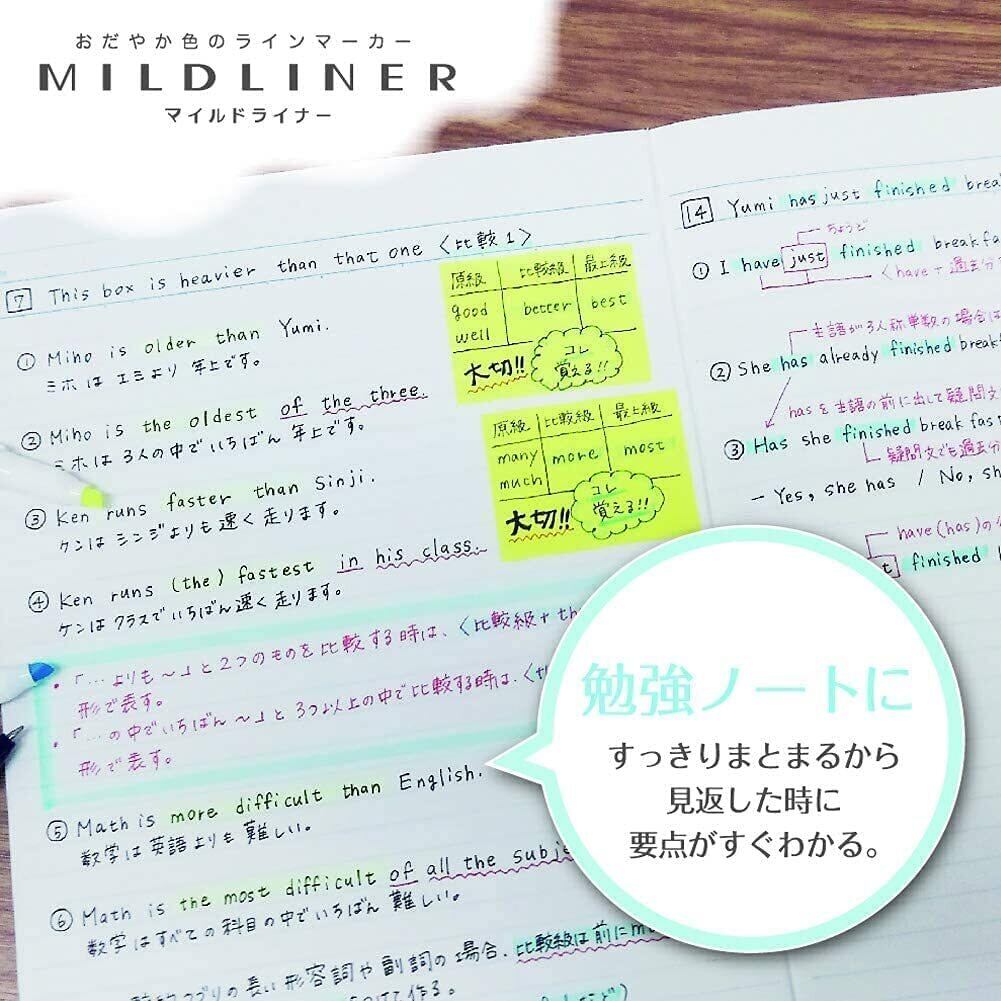 おだやか色のラインマーカー
MILDLINER
マイルドライナー
7 This box is heavier than that one 〈比較1〉
① Miho is older than Yumi.
ミホは エミより 年上です。
② Miho is the oldest of the three.
ミホは 3人の中でいちばん 年上です。
③ Ken runs faster than Sinji.
ケンは シンジよりも 速く 走ります。
④ Ken runs (the) fastest in his class.
ケンは クラスでいちばん 速く 走ります。
・「…よりも〜」と2つのものを比較する時は、〈比較級+th
形で表す。
・「…の中でいちばん〜」と3つ以上の中で比較する時は、〈th
形で表す。
⑤ Math is more difficult than English.
数学は英語よりも 難しい。
⑥ Math is the most difficult of all the subje
数学はすべての科目の中でいちばん 難しい。
の長い形容詞や副詞の場合、比較級は前にm
つけて作る。
原級 比較級 最上級
good better best
well
大切!! コレ
覚える!!
原級 比較級 最上級
many more most
much
大切!! コレ
覚える!!
14 Yumi has just finished brea
ちょうど
① I have just finished breakfa
〈have+過去分
主語が3人称単数の場合は
② She has already finished break
hasを主語の前に出して疑問文
③ Has she finished breakfas
疑問文でも過去分
– Yes, she has / No, sh
have(has)の
t finished
勉強ノートに
すっきりまとまるから
見返した時に
要点がすぐわかる。